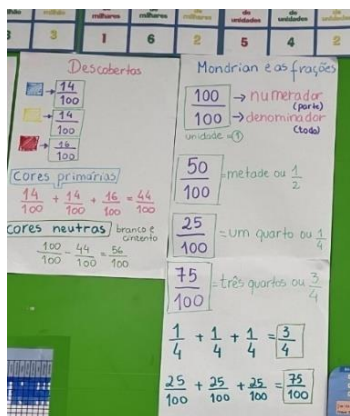 milhares
milhares
de
unidades
de
unidades
3 1 6 2 5 4 2
Descobertas
→ 14/100
→ 14/100
→ 16/100
cores primárias
14/100 + 14/100 + 16/100 = 44/100
cores neutras) branco e
cinzento
100/100 - 44/100 = 56/100
Mondrian e as frações
100/100 → numerador
(parte)
→ denominador
(todo)
unidade = 1
50/100 = metade ou 1/2
25/100 = um quarto ou 1/4
75/100 = três quartos ou 3/4
1/4 + 1/4 + 1/4 = 3/4
25/100 + 25/100 + 25/100 = 75/100